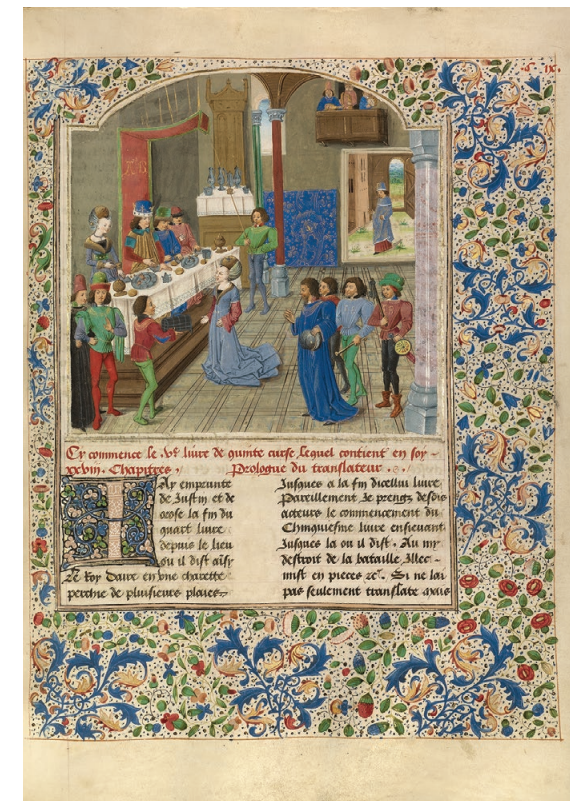 Cy commence le Ve livre de quinte curse lequel contient en soy
xxviij. Chapitres. Prologue du translateur.
Jay emprunte
de Justin et de
orose la fin du
quart livre
depuis le lieu
ou il dist aussy
Le Roy Daire en vne charette
perchie de pluiseurs plaies
Jusques a la fin dicellui livre
Pareillement Je prengz desdis
acteurs le commencement du
Chinquiesme livre ensieuant
Jusques la ou il dist. Au my
destroit de la bataille Illec
mist en pieces Si ne lai
pas seulement translate mais